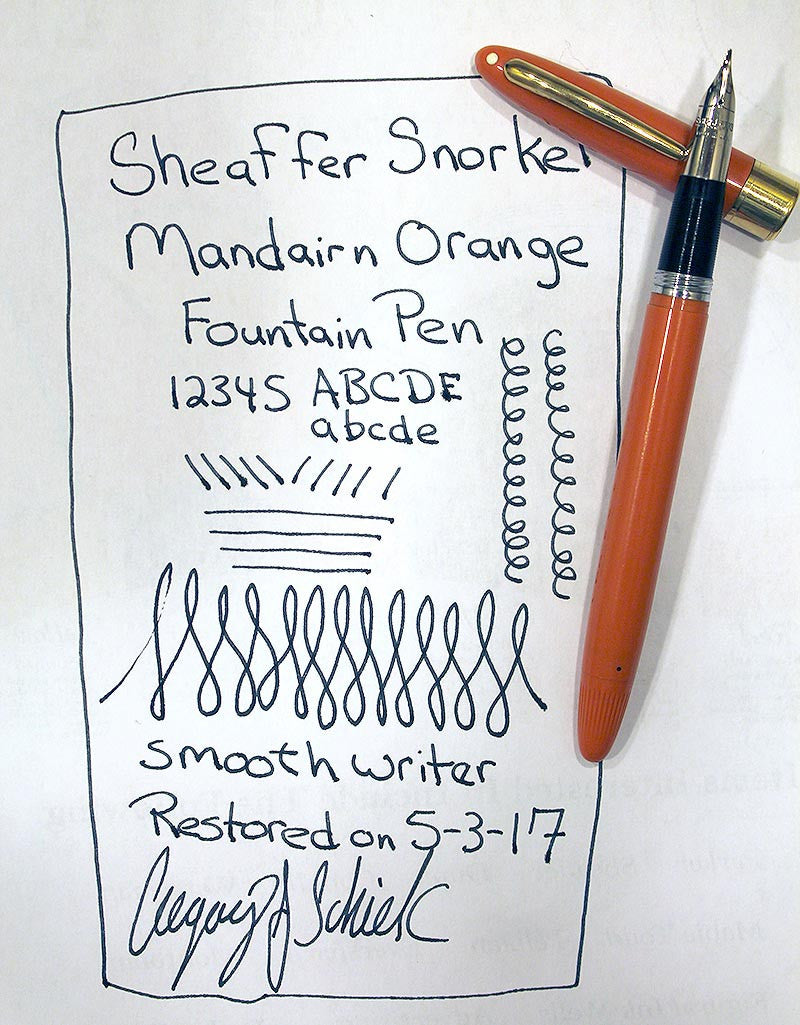 Sheaffer Snorkel
Mandairn Orange
Fountain Pen
12345 ABCDE
abcde
smooth writer
Restored on 5-3-17
Gregory J Schick